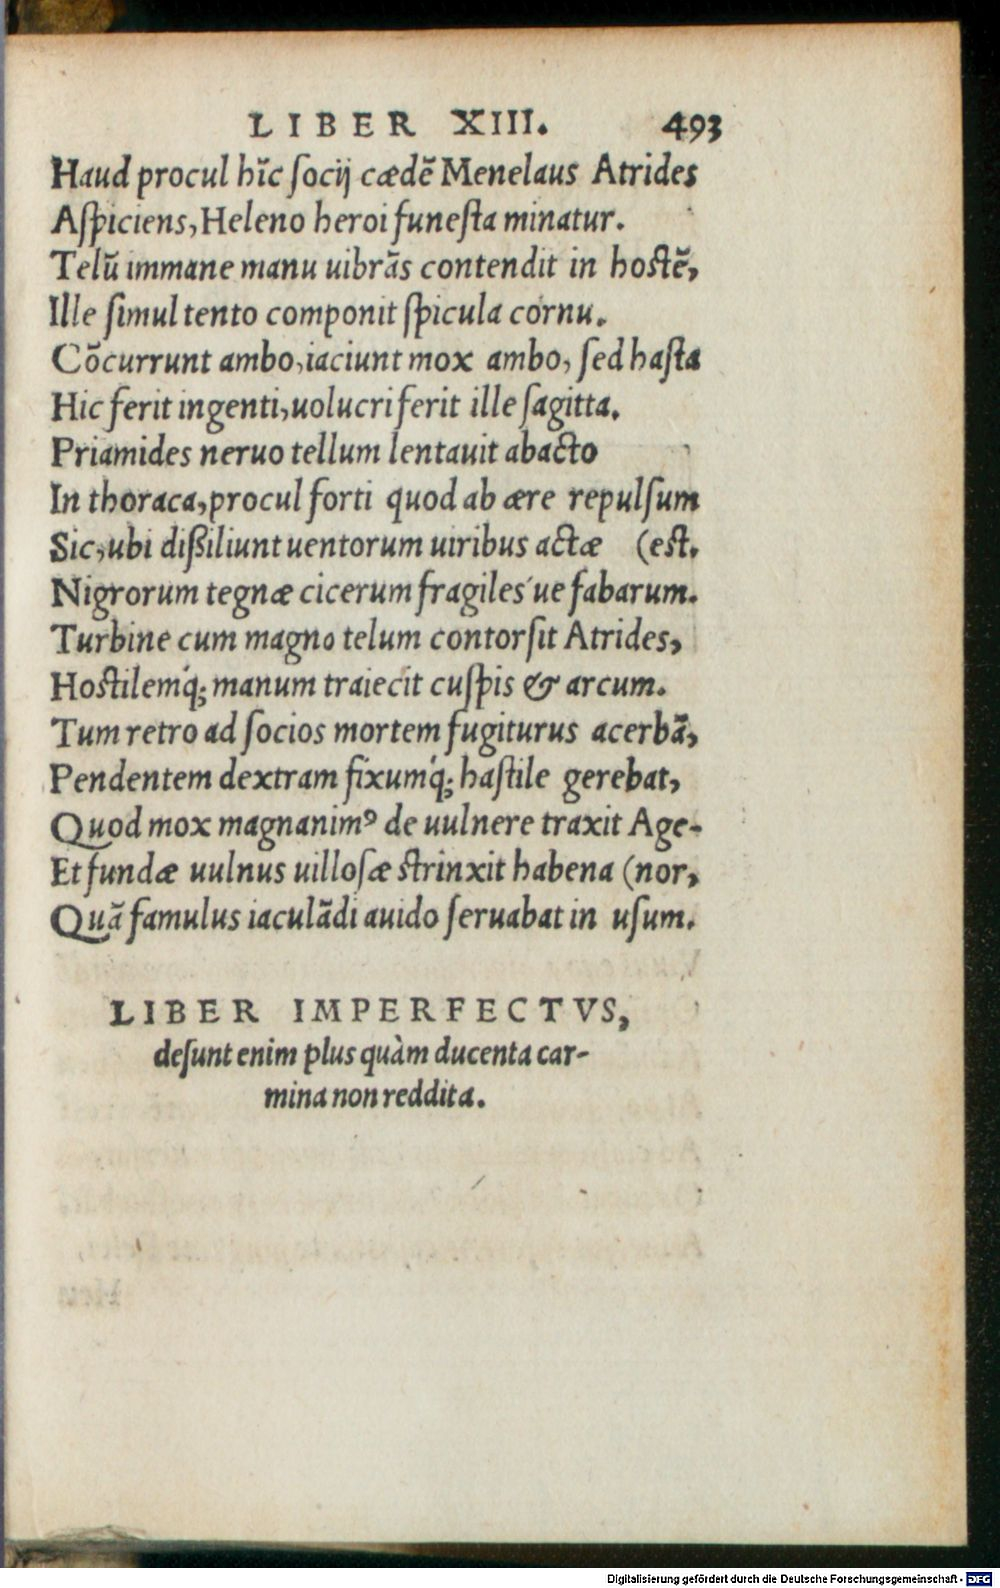 LIBER XIII. 493
Haud procul hĩc ſocij cædẽ Menelaus Atrides
Aſpiciens, Heleno heroi funeſta minatur.
Telũ immane manu uibrãs contendit in hoſtẽ,
Ille ſimul tento componit ſpicula cornu.
Cõcurrunt ambo, iaciunt mox ambo, ſed haſta
Hic ferit ingenti, uolucri ferit ille ſagitta.
Priamides neruo tellum lentauit abacto
In thoraca, procul forti quod ab ære repulſum
Sic, ubi dißiliunt uentorum uiribus actæ (eſt.
Nigrorum tegnæ cicerum fragiles´ue fabarum.
Turbine cum magno telum contorſit Atrides,
Hoſtilemq́; manum traiecit cuſpis & arcum.
Tum retro ad ſocios mortem fugiturus acerbã,
Pendentem dextram fixumq́; haſtile gerebat,
Quod mox magnanimꝰ de uulnere traxit Age-
Et fundæ uulnus uilloſæ ſtrinxit habena (nor,
Quã famulus iaculãdi auido ſeruabat in uſum.
LIBER IMPERFECTVS,
deſunt enim plus quàm ducenta car-
mina non reddita.
Digitalisierung gefördert durch die Deutsche Forschungsgemeinschaft - DFG